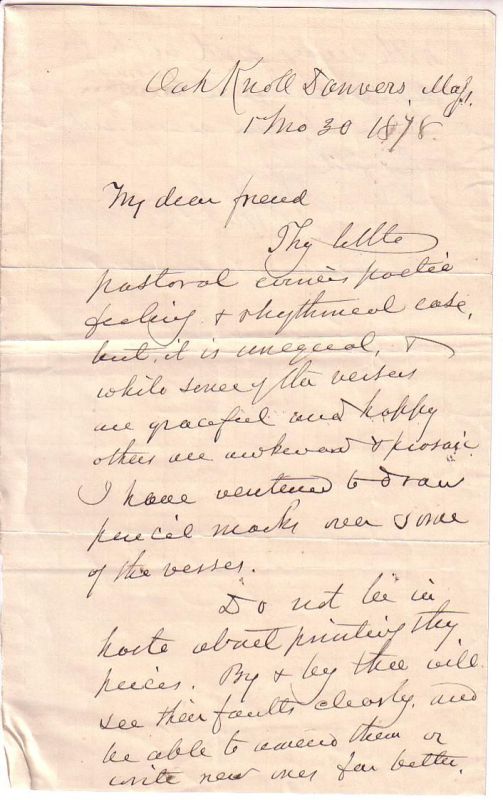 Oak Knoll Danvers, Mass.
1st Mo 30 1878.
My dear friend
Thy little
pastoral evinces poetic
feeling & rhythmical ease,
but, it is unequal, &
while some of the verses
are graceful and happy
others are awkward & prosaic.
I have ventured to draw
pencil marks over some
of the verses.
Do not be in
haste about printing thy
pieces. By & by thee will
see their faults clearly, and
be able to amend them or
write new ones far better.